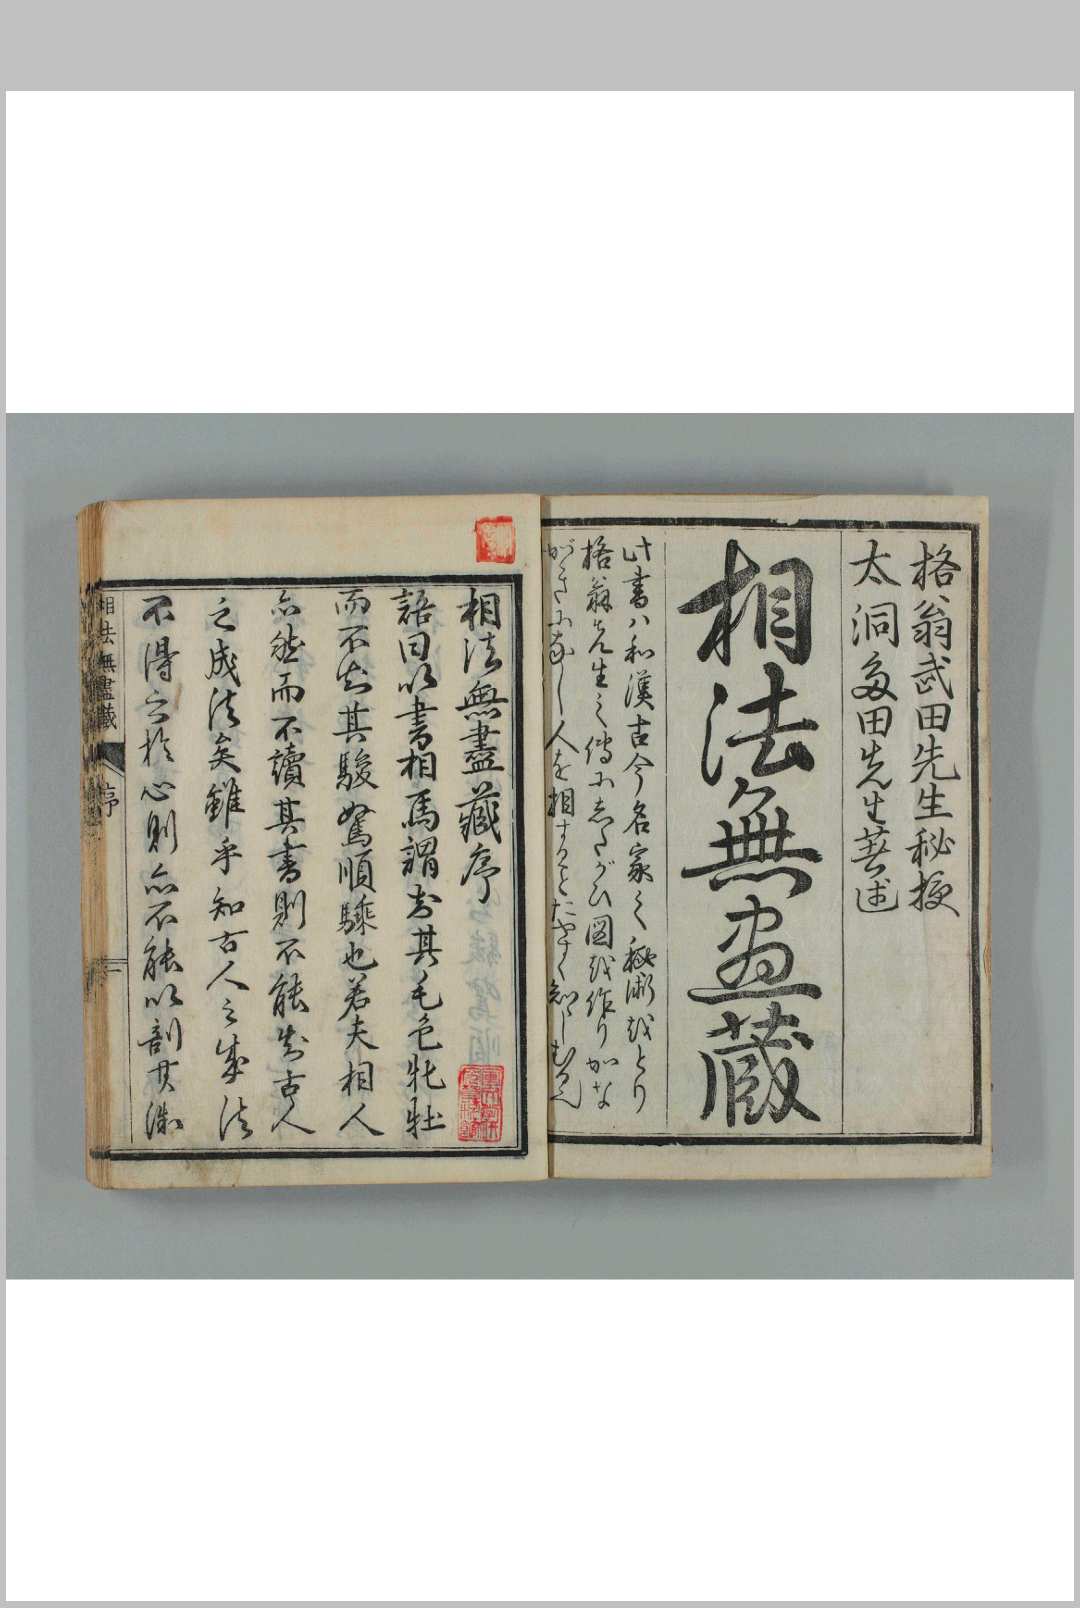 格翁武田先生秘授
太洞多田先生著述
相法無盡蔵
此書ハ和漢古今名家之秘術越とり
格翁先生之傳尓志たがひ図越作りかな
がき尓なし人を相することたやすく知しむる
相法無盡藏序
語曰以書相馬謂知其毛色牝牡
而不知其駿駑順騄也若夫相人
亦然而不讀其書則不能知古人
之成法矣雖乎知古人之成法
不得之於心則亦不能以剖其
相法無盡藏
序
一